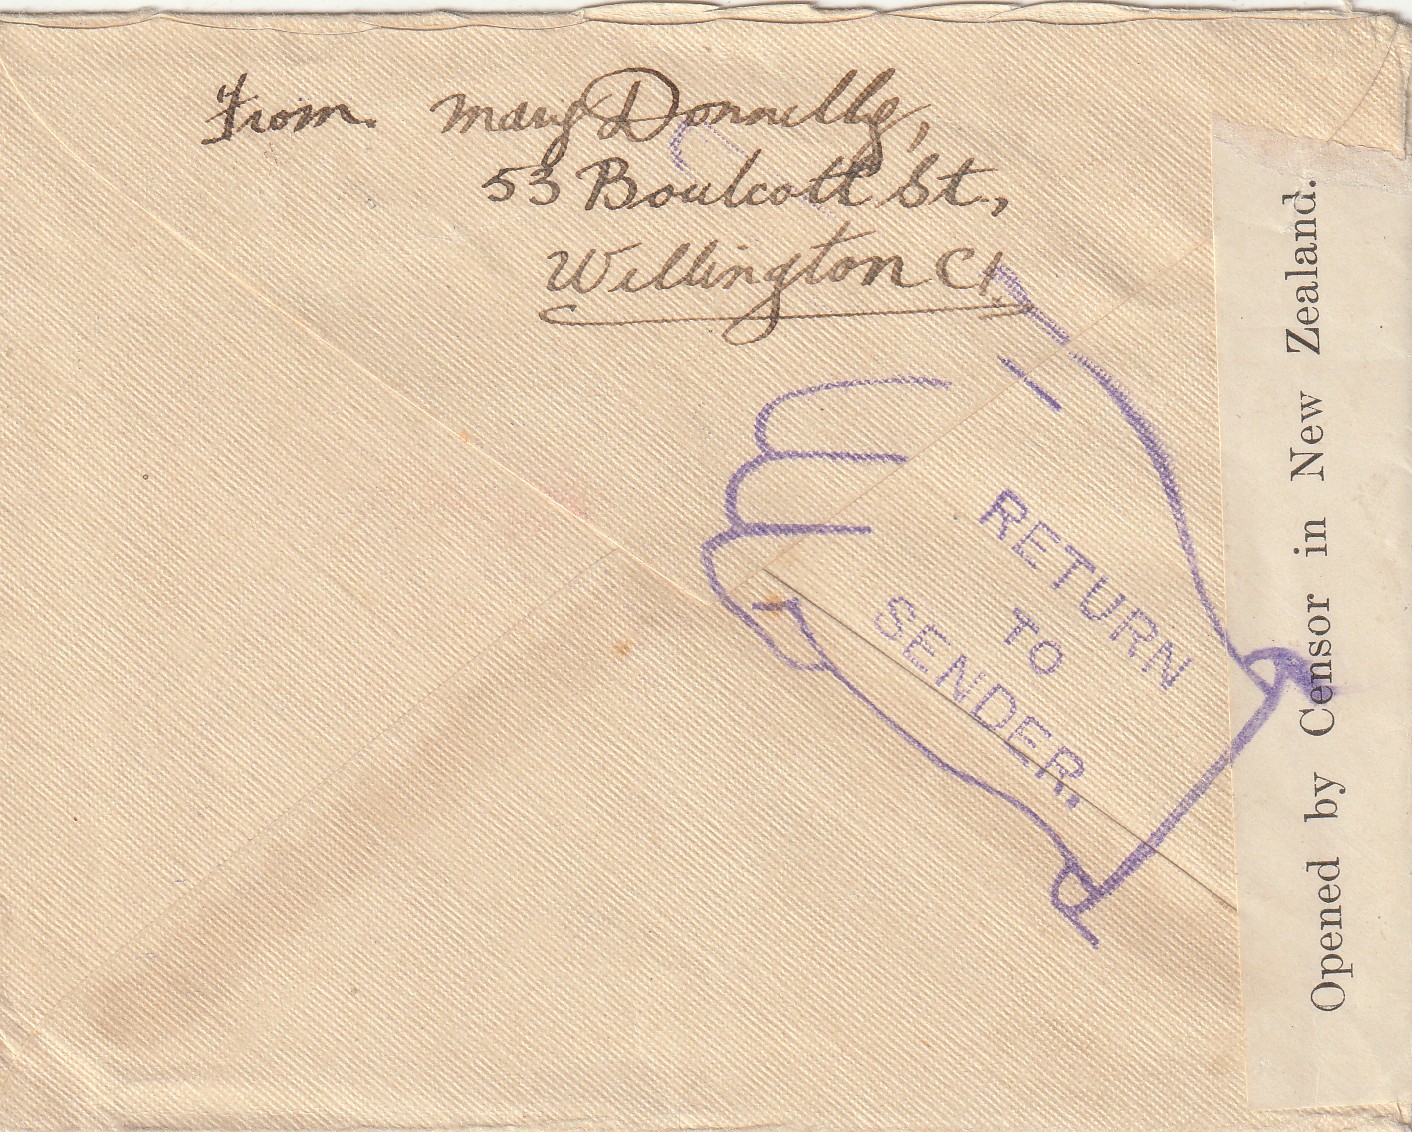 From. Mary Donnelly,
53 Boulcott St.,
Wellington C1.
RETURN
TO
SENDER.
Opened by Censor in New Zealand.